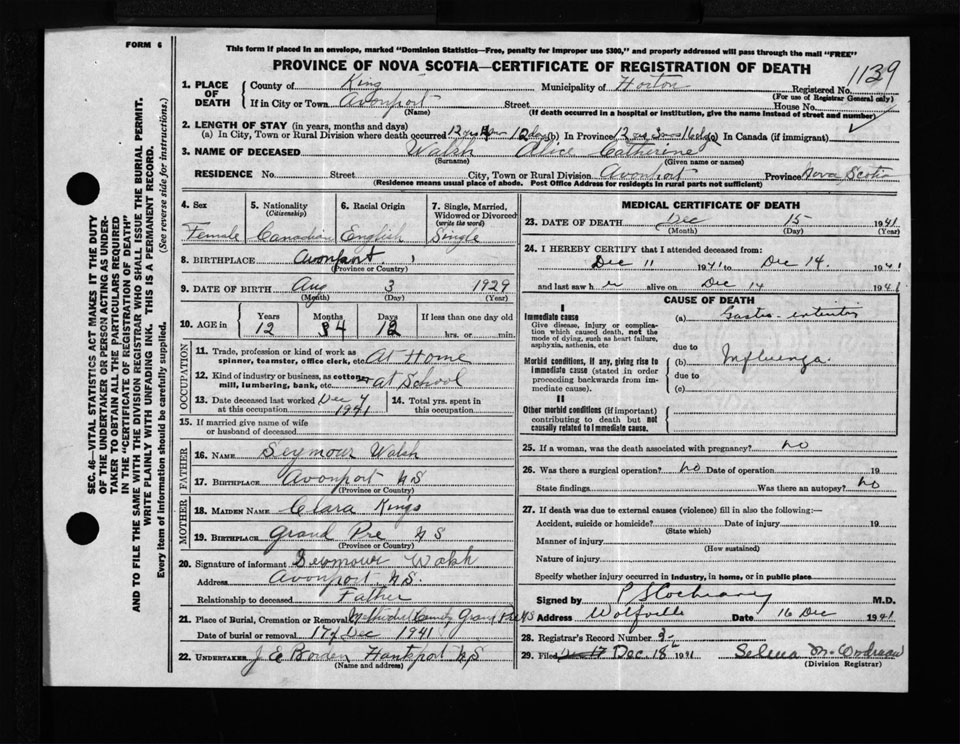 FORM 6
This form if placed in an envelope, marked "Dominion Statistics—Free, penalty for improper use $300," and properly addressed will pass through the mail "FREE"
PROVINCE OF NOVA SCOTIA—CERTIFICATE OF REGISTRATION OF DEATH
1139
1. PLACE OF DEATH
County of King Municipality of Horton Registered No.
(For use of Registrar General only)
If in City or Town Avonport Street House No.
(Name) (If death occurred in a hospital or institution, give the name instead of street and number)
2. LENGTH OF STAY (in years, months and days)
(a) In City, Town or Rural Division where death occurred 12 yrs 4m 12 days (b) In Province 12 (c) In Canada (if immigrant)
3. NAME OF DECEASED Walsh Alice Catherine
(Surname) (Given name or names)
RESIDENCE No. Street City, Town or Rural Division Avonport Province Nova Scotia
(Residence means usual place of abode. Post Office Address for residents in rural parts not sufficient)
4. Sex 5. Nationality (Citizenship) 6. Racial Origin 7. Single, Married, Widowed or Divorced (write the word)
Female Canadian English Single
8. BIRTHPLACE Avonport
(Province or Country)
9. DATE OF BIRTH Aug 3 1929
(Month) (Day) (Year)
10. AGE in Years Months Days If less than one day old
12 4 12 hrs. or min.
OCCUPATION
11. Trade, profession or kind of work as spinner, teamster, office clerk, etc. At Home
12. Kind of industry or business, as cotton mill, lumbering, bank, etc. At School
13. Date deceased last worked at this occupation Dec 7 1941
14. Total yrs. spent in this occupation
15. If married give name of wife or husband of deceased
FATHER
16. NAME Seymour Walsh
17. BIRTHPLACE Avonport NS
(Province or Country)
MOTHER
18. MAIDEN NAME Clara Kings
19. BIRTHPLACE Grand Pre NS
(Province or Country)
20. Signature of informant Seymour Walsh
Address Avonport N.S.
Relationship to deceased Father
21. Place of Burial, Cremation or Removal Methodist Cemty Grand Pre NS
Date of burial or removal 17 of Dec 1941
22. UNDERTAKER J E Borden Hantsport NS
(Name and address)
MEDICAL CERTIFICATE OF DEATH
23. DATE OF DEATH Dec 15 1941
(Month) (Day) (Year)
24. I HEREBY CERTIFY that I attended deceased from:
Dec 11 1941 to Dec 14 1941
and last saw h er alive on Dec 14 1941
CAUSE OF DEATH
I
Immediate cause
Give disease, injury or complication which caused death, not the mode of dying, such as heart failure, asphyxia, asthenia, etc
(a) Gastro-enteritis
due to
Morbid conditions, if any, giving rise to immediate cause (stated in order proceeding backwards from immediate cause).
(b) Influenza
due to
(c)
II
Other morbid conditions (if important) contributing to death but not causally related to immediate cause.
25. If a woman, was the death associated with pregnancy? no
26. Was there a surgical operation? no Date of operation 19
State findings Was there an autopsy? no
27. If death was due to external causes (violence) fill in also the following:—
Accident, suicide or homicide? Date of injury 19
(State which)
Manner of injury
(How sustained)
Nature of injury
Specify whether injury occurred in industry, in home, or in public place
Signed by P S Cochrane M.D.
Address Wolfville Date 16 Dec 1941
28. Registrar's Record Number
29. Filed Dec. 18 1941 Selena
(Division Registrar)
SEC. 46—VITAL STATISTICS ACT MAKES IT THE DUTY
OF THE UNDERTAKER OR PERSON ACTING AS UNDERTAKER TO OBTAIN ALL THE PARTICULARS REQUIRED
IN THE "CERTIFICATE OF REGISTRATION OF DEATH"
AND TO FILE THE SAME WITH THE DIVISION REGISTRAR WHO SHALL ISSUE THE BURIAL PERMIT.
WRITE PLAINLY WITH UNFADING INK. THIS IS A PERMANENT RECORD.
Every item of information should be carefully supplied. (See reverse side for instructions.)